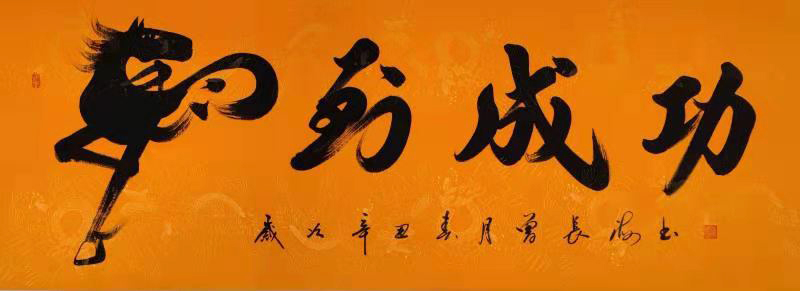 马到成功
歲次辛丑春月曾長海书